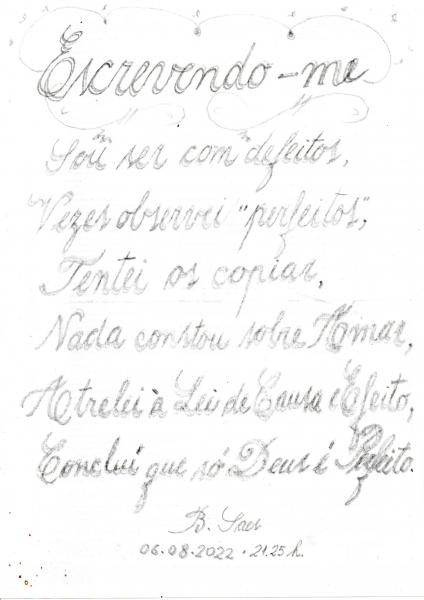 Escrevendo-me
Sou ser com defeitos,
Vezes observei "perfeitos",
Tentei os copiar,
Nada constou sobre Amar,
Atrelei à Lei de Causa e Efeito,
Conclui que só Deus é Perfeito.
B.
06.08.2022 . 21.25 h.